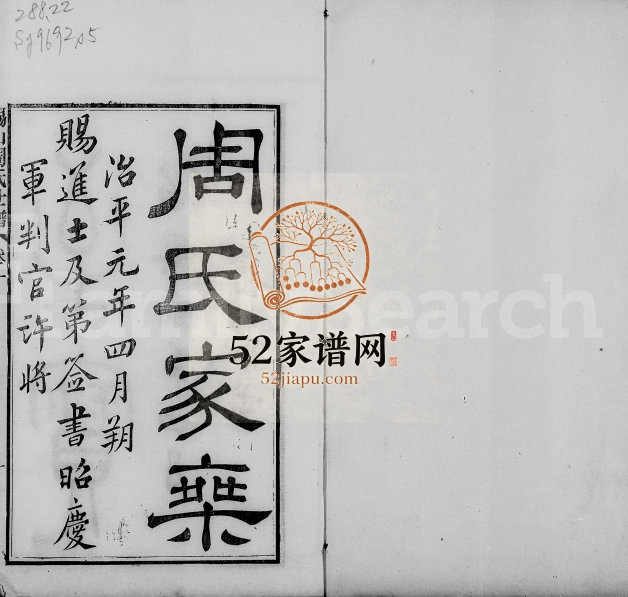 288.22
Sj9692.05
周氏家乗
治平元年四月朔
賜進士及第签書昭慶
軍判官许将
山周氏世譜
卷一
52家谱网
52jiapu.com
FamilySearch